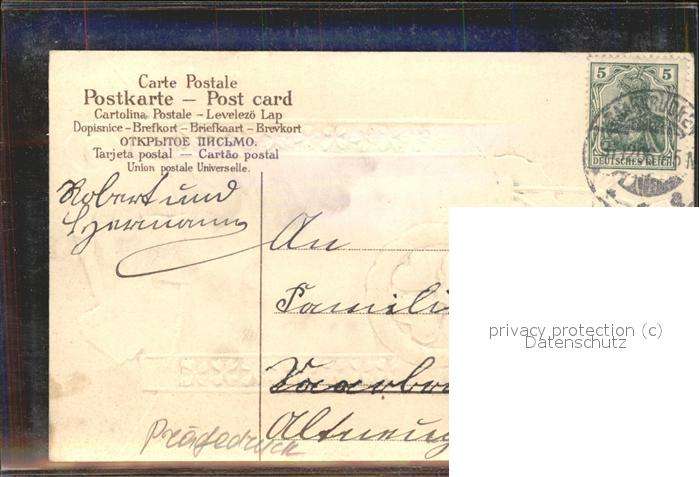 Carte Postale
Postkarte – Post card
Cartolina Postale - Levelező Lap
Dopisnice - Brefkort - Briefkaart - Brevkort
ОТКРЫТОЕ ПИСЬМО.
Tarjeta postal – Cartão postal
Union postale Universelle.
5 5
DEUTSCHES REICH
Robert und
Hermann
An
Famili
Altneug
Prägedruck
privacy protection (c)
Datenschutz